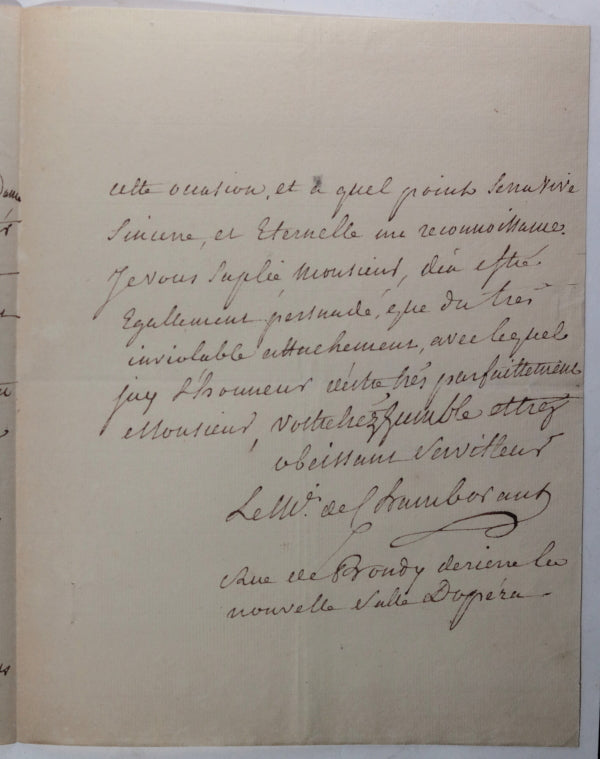 cette occasion, et a quel point sera vive
Sincere, et Eternelle ma reconnoissance.
Je vous Suplie, Monsieur, d'en estre
Egallement persuadé, que du tres
inviolable attachement, avec lequel
jay L'honneur d'estre trés parfaittement
Monsieur, votre trés humble et trés
obeissant Serviteur
Le M.is de Chamborant
Rue de Bondy deriere la
nouvelle Salle Dopéra